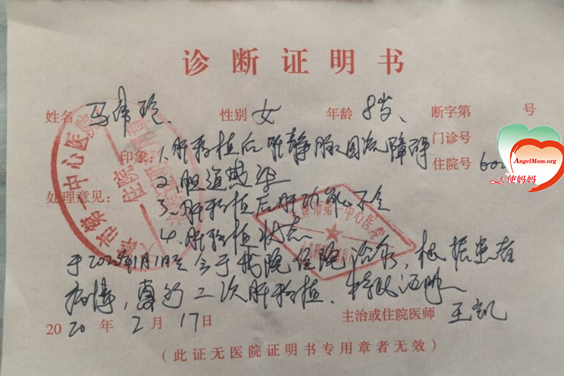 诊断证明书
姓名 马 性别 女 年龄 8岁 断字第 号
门诊号
印象:1.肝移植后肝静脉回流障碍 住院号 602
2.胆道感染
处理意见: 3.肝移植后肝功能不全
4.肝移植状态
于2020年1月1日至今于我院住院治疗,根据患者
病情,需行二次肝移植,特此证明
主治或住院医师 王凯
2020年2月17日
(此证无医院证明书专用章者无效)
AngelMom.org
天使妈妈
中心医院
第一中心医院